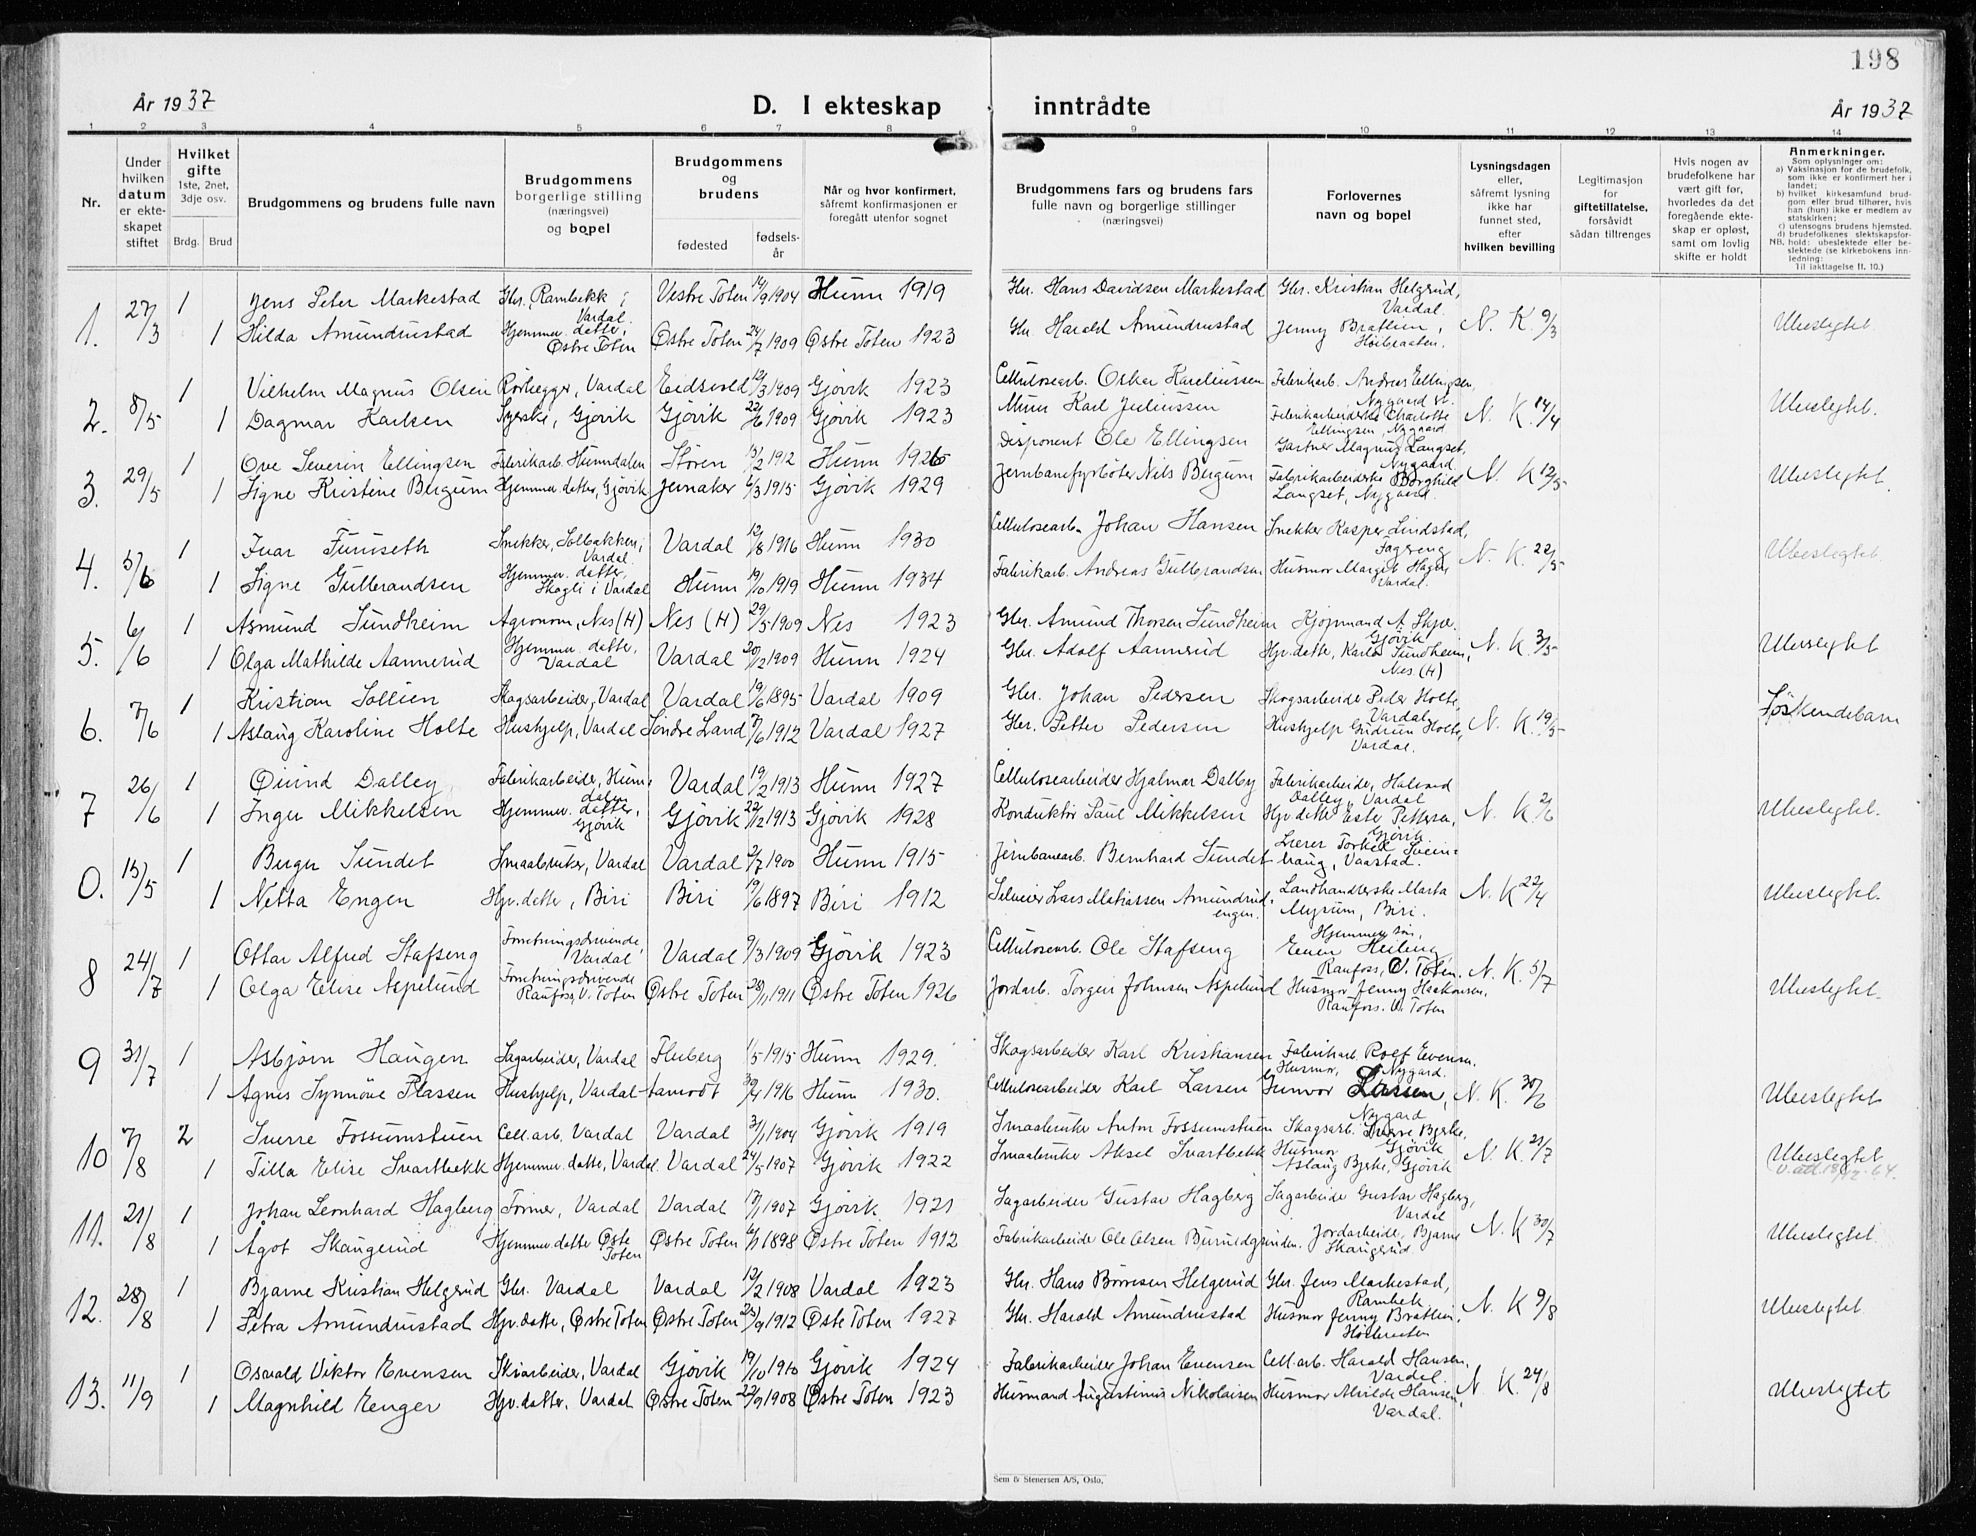 198
År 1937 D. I ekteskap inntrådte År 1937
1 2 3 4 5 6 7 8 9 10 11 12 13 14
Nr.
Under hvilken datum er ekteskapet stiftet
Hvilket gifte 1ste, 2net, 3dje osv.
Brdg. Brud
Brudgommens og brudens fulle navn
Brudgommens borgerlige stilling (næringsvei) og bopel
Brudgommens og brudens
fødested fødselsår
Når og hvor konfirmert, såfremt konfirmasjonen er foregått utenfor sognet
Brudgommens fars og brudens fars fulle navn og borgerlige stillinger (næringsvei)
Forlovernes navn og bopel
Lysningsdagen eller, såfremt lysning ikke har funnet sted, efter hvilken bevilling
Legitimasjon for giftetillatelse, forsåvidt sådan tiltrenges
Hvis nogen av brudefolkene har vært gift før, hvorledes da det foregående ekteskap er opløst, samt om lovlig skifte er holdt
Anmerkninger.
Som oplysninger om:
a) Vaksinasjon for de brudefolk, som ikke er konfirmert her i landet;
b) hvilket kirkesamfund brudgom eller brud tilhører, hvis han (hun) ikke er medlem av statskirken;
c) utensogns brudens hjemsted.
d) brudefolkenes slektskapsforhold: ubeslektede eller beslektede (se kirkebokens innledning:
NB.
Til iakttagelse II. 10.)
1. 27/3 1 Jens Peter Markestad Gbr. Rambekk i Vardal. Vestre Toten 14/9 1904 Hunn 1919 Gbr. Hans Davidsen Markestad Gbr. Kristian Helgerud, Vardal. N. K. 9/3 Ubeslegtet
1 Hilda Amundrustad Hjemmev. datter, Østre Toten Østre Toten 24/7 1909 Østre Toten 1923 Gbr Harald Amundrustad Jenny Bratlien, Høibraaten.
2. 8/5 1 Vilhelm Magnus Olsen Rørlegger, Vardal Eidsvold 12/3 1909 Gjøvik 1923 Cellulosearb. Oskar Kareliussen Fabrikarb. Andreas Ellingsen, Nygaard N. K. 14/4 Ubeslegtet.
1 Dagmar Karlsen Syerske, Gjøvik Gjøvik 22/6 1909 Gjøvik 1923 Murer Karl Juliussen Fabrikarbeiderske Charlotte Ellingsen, Nygaard
3. 29/5 1 Ove Severin Ellingsen Fabrikarb. Hunndalen Støren 15/2 1912 Hunn 1926 Disponent Ole Ellingsen Gartner Magnus Langset, Nygaard N. K. 12/5 Ubeslegtet.
1 Signe Kristine Bergum Hjemmev. datter, Gjøvik Jevnaker 6/3 1915 Gjøvik 1929 Jernbanefyrbøter Nils Bergum Fabrikarbeiderske Borghild Langset, Nygaard.
4. 5/6 1 Ivar Furuseth Snekker, Solbakken i Vardal. Vardal 12/8 1916 Hunn 1930 Cellulosearb. Johan Hansen Snekker Kasper Lindstad, Fagereng N. K. 22/5 Ubeslegtet
1 Signe Gulbrandsen Hjemmev. datter, Skogli i Vardal Hunn 19/10 1919 Hunn 1934 Fabrikarb. Andreas Gulbrandsen Husmor Margit Hagen Vardal.
5. 6/6 1 Asmund Sundheim Agronom, Nes (H) Nes (H) 29/5 1909 Nes 1923 Gbr. Amund Thorsen Sundheim Kjøpmand A. Skjæ. Gjøvik N. K. 3/5 Ubeslegtet
1 Olga Mathilde Aannerud Hjemmev. datter, Vardal Vardal 20/12 1909 Hunn 1924 Gbr. Adolf Aannerud Hjv. datter, Karlot Sundheim, Nes (H)
6. 7/6 1 Kristian Sollien Skogsarbeider, Vardal Vardal 19/6 1895 Vardal 1909 Gbr. Johan Pedersen Skogsarbeider Peder Holte, Vardal N. K. 19/5 Søskendebarn
1 Aslaug Karoline Holte Hushjelp, Vardal Søndre Land 7/6 1912 Vardal 1927 Gbr. Petter Pedersen Hushjelp Gudrun Holte, Vardal.
7 26/6 1 Øivind Dalby Fabrikarbeider, Hunndalen Vardal 19/2 1913 Hunn 1927 Cellulosearbeider Hjalmar Dalby Fabrikarbeider, Halvard Dalby, Vardal N. K. 2/6 Ubeslegtet.
1 Inger Mikkelsen Hjemmev. datter, Gjøvik Gjøvik 22/12 1913 Gjøvik 1928 Konduktør Paul Mikkelsen Hjv. datter Ester Pettersen, Gjøvik
0. 15/5 1 Birger Sundet Smaabruker, Vardal Vardal 2/7 1900 Hunn 1915 Jernbanearb. Bernhard Sundet Lærer Torkel Sveinhaug, Vaastad. N. K. 22/4 Ubeslegtet.
1 Netta Engen Hjv. datter, Biri Biri 19/6 1897 Biri 1912 Selveier Lars Matiassen Amundrudengen. Landhandlerske Marta Myrum, Biri.
8 24/7 1 Ottar Alfred Stafseng Forretningsdrivende, Vardal Vardal 9/3 1909 Gjøvik 1923 Cellulosearb. Ole Stafseng Hjemmev. søn, Einar Heiling, Raufoss, V. Toten. N. K. 5/7 Ubeslegtet.
1 Olga Elise Aspelund Forretningsdrivende Raufoss, V. Toten Østre Toten 28/11 1911 Østre Toten 1926 Jordarb. Torgeir Johnsen Aspelund Husmor Jenny Haakonsen, Raufoss. V. Toten
9 31/7 1 Asbjørn Haugen Sagarbeider, Vardal Fluberg 1/5 1915 Hunn 1929. Skogsarbeider Karl Kristiansen Fabrikarb. Rolf Evensen. Nygard. N. K. 30/6 Ubeslegtet
1 Agnes Synnøve Plassen Hushjelp, Vardal Åamodt 30/4 1916 Hunn 1930. Cellulosearbeider Karl Larsen Husmor, Gunvor Larsen, Nygard
10 7/8 2 Sverre Fossumstuen Cell. arb. Vardal Vardal 31/1 1904 Gjøvik 1919 Smaabruker Anton Fossumstuen Skogsarb. Sverre Bjerke, Gjøvik N. K. 21/7 Ubeslegtet
1 Tilla Elise Svartbekk Hjemmev. datter, Vardal. Vardal 24/5 1907 Gjøvik 1922 Smaabruker Aksel Svartbekk Husmor Aslaug Bjerke, Gjøvik V. att. 18/12-64.
11. 21/8 1 Johan Leonhard Hagberg Former, Vardal Vardal 17/1 1907 Gjøvik 1921 Sagarbeider Gustav Hagberg Sagarbeider Gustav Hagberg, Vardal N. K. 30/7 Ubeslegtet.
1 Ågot Skaugerud Hjemmev. datter Øste Toten Østre Toten 6/11 1898 Østre Toten 1912 Fabrikarbeider Ole Olsen Jordarbeider, Bjarne Skaugerud
12. 28/8 1 Bjarne Kristian Helgerud Gbr. Vardal Vardal 12/2 1908 Vardal 1923 Gbr. Hans Børresen Helgerud Gbr. Jens Markestad, Rambek N. K. 9/8 Ubeslegtet.
1 Petra Amundrustad Hjv. datter, Østre Toten Østre Toten 25/9 1912 Øste Toten 1927 Gbr. Harald Amundrustad Husmor Jenny Bratlien, Høibraaten
13. 11/9 1 Osvald Viktor Evensen Skiarbeider, Vardal Gjøvik 19/10 1910 Gjøvik 1924 Fabrikarbeider Johan Evensen Cell. arb. Harald Hansen, Vardal. N. K. 24/8 Ubeslegtet
1 Magnhild Enger Hjv. datter. Vardal Østre Toten 22/9 1908 Østre Toten 1923 Husmand Augustinus Nikolaisen Husmor Alvilde Hansen, Vardal.
Sem & Stenersen A/S, Oslo.